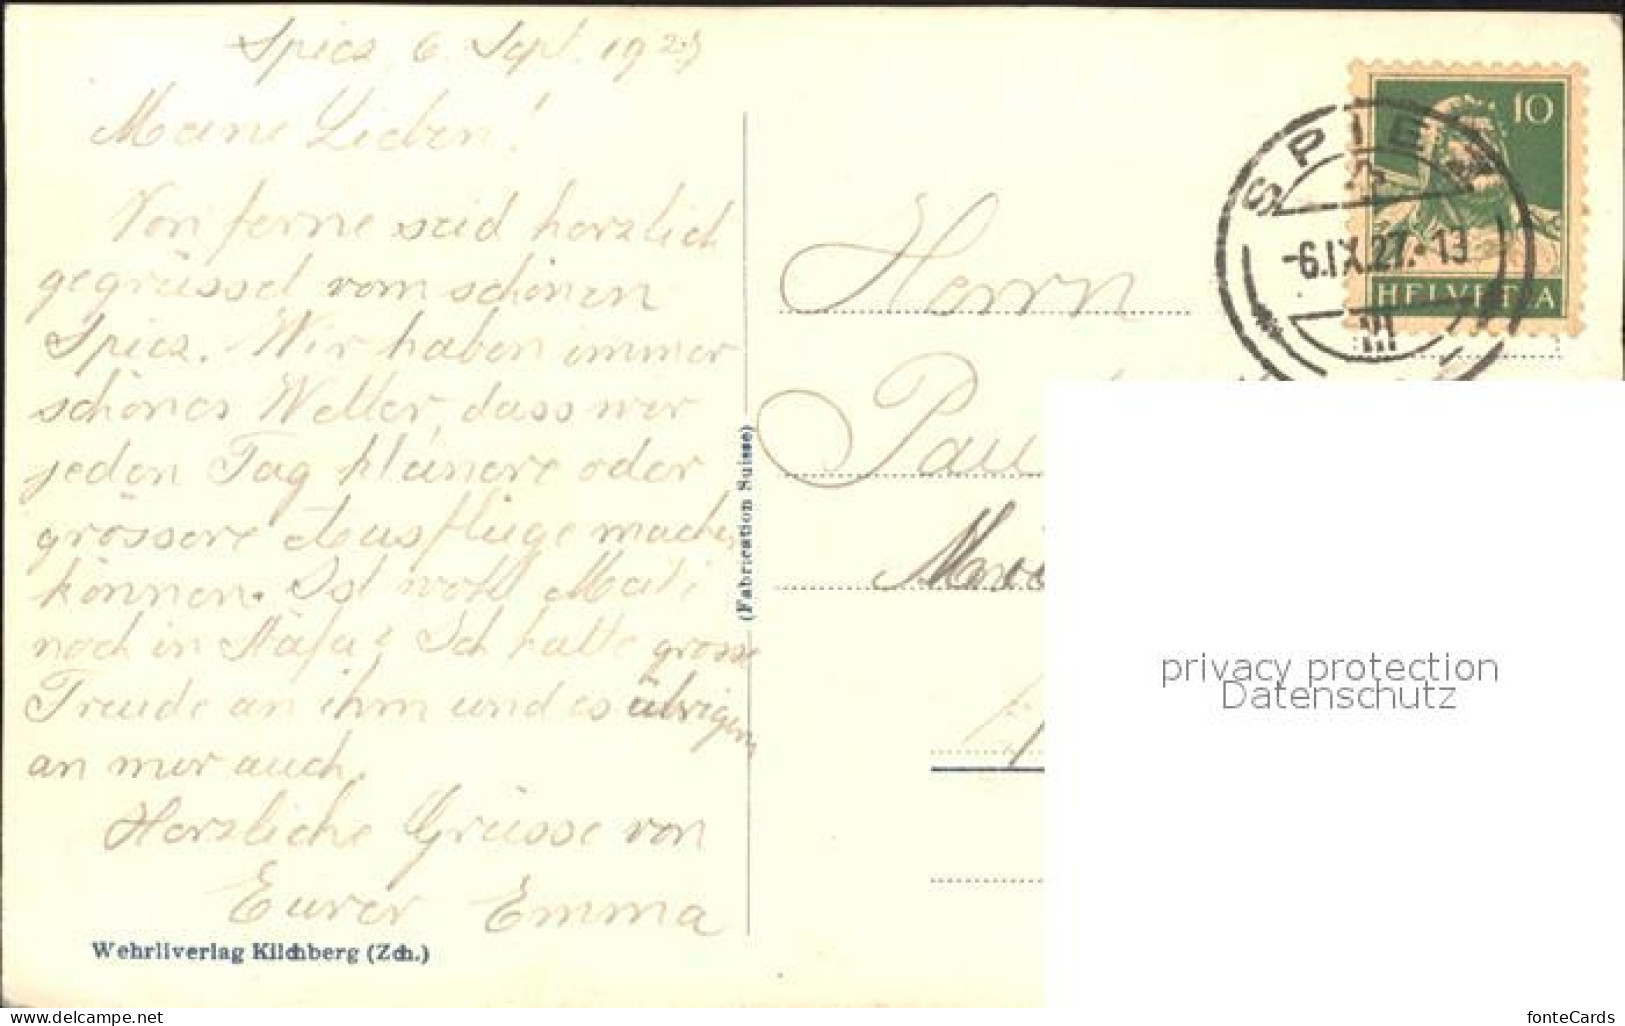 Spiez, 6. Sept. 1927
Meine Lieben!
Von ferne seid herzlich
gegrüsset vom schönen
Spiez. Wir haben immer
schönes Wetter, dass wir
jeden Tag kleinere oder
grössere Ausflüge machen
können. Ist wohl
noch in Stäfa? Ich hatte grosse
Freude an ihm und es übrigens
an mir auch.
Herzliche Grüsse von
Eurer Emma
Wehrliverlag Kilchberg (Zch.)
(Fabrication Suisse)
Herrn
Pau
10
HELVETIA
SPIEZ
-6.IX.27.-13
privacy protection
Datenschutz
www.delcampe.net
fonteCards